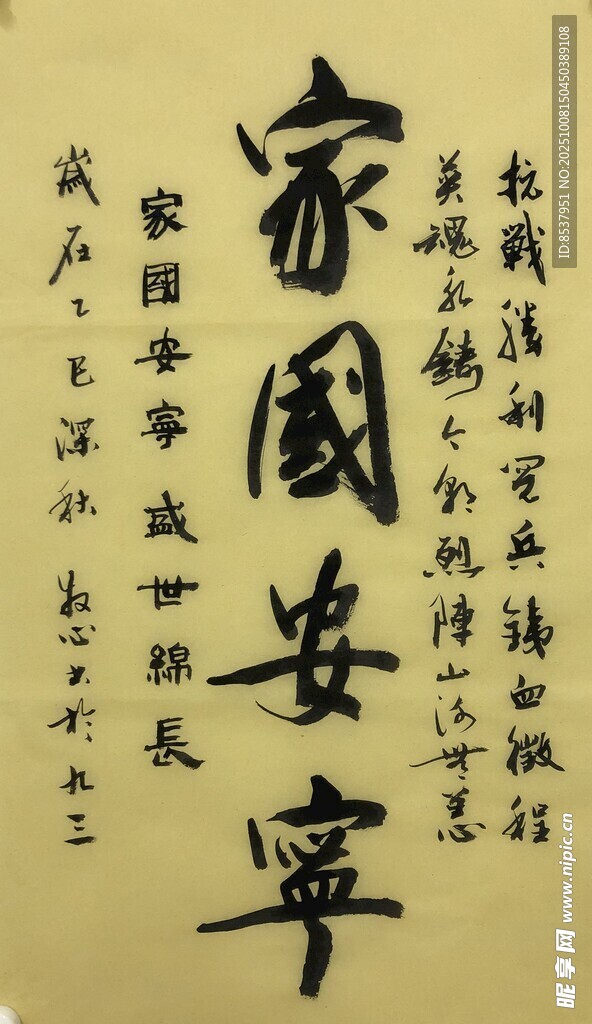 抗戰勝利閱兵鐵血徵程
英魂永鑄今朝烈陣山河無恙
家國安寧
家國安寧盛世綿長
歲在乙巳深秋 牧心書於九三
ID:8537951 NO:20251008150450389108
昵享网 www.nipic.cn